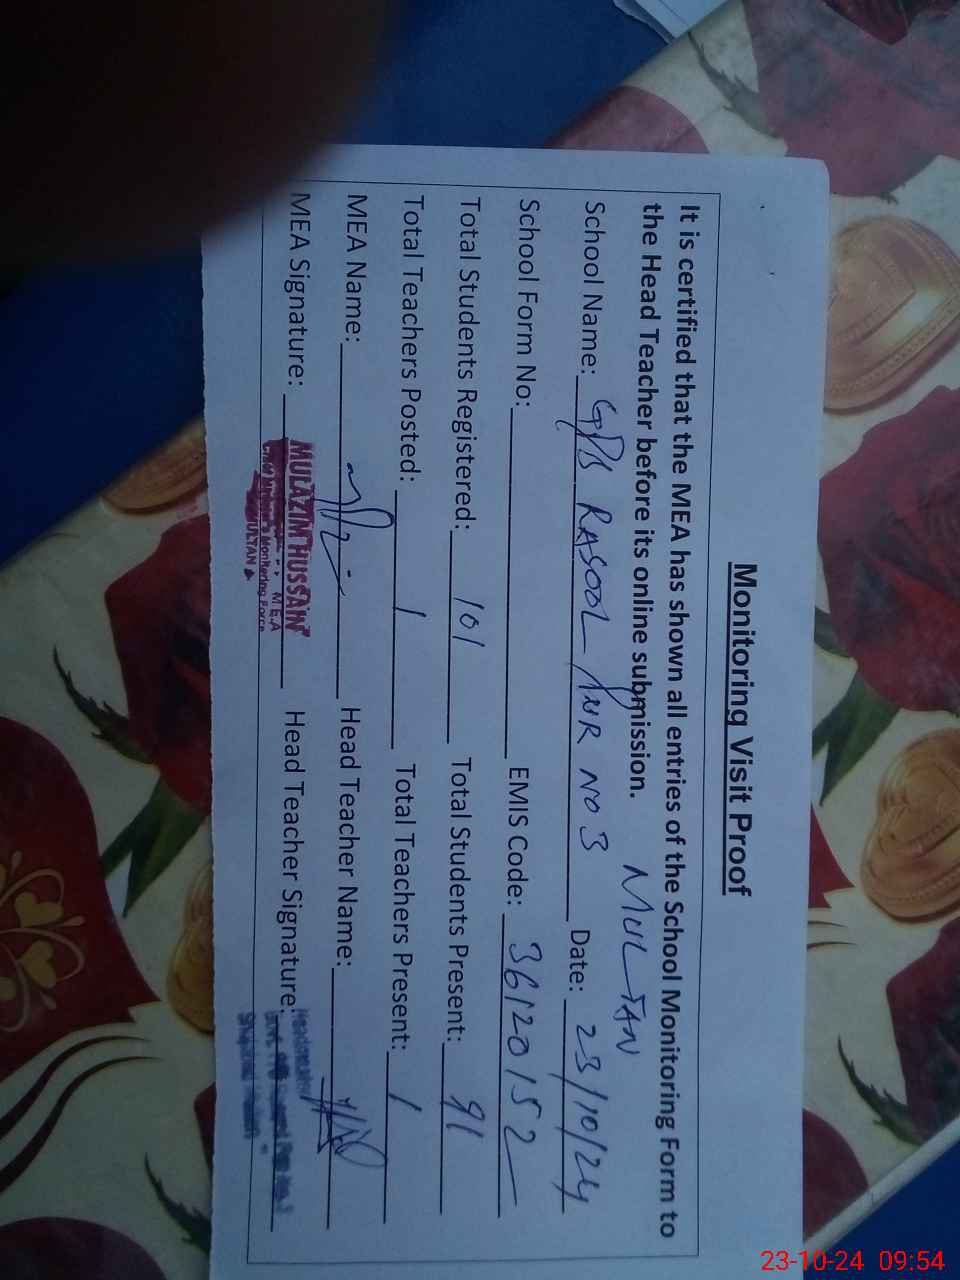 Monitoring Visit Proof
It is certified that the MEA has shown all entries of the School Monitoring Form to
the Head Teacher before its online submission.
MULTAN
School Name: GPS RASOOL PUR NO 3 Date: 23/10/24
School Form No: EMIS Code: 36120152
Total Students Registered: 101 Total Students Present: 91
Total Teachers Posted: 1 Total Teachers Present: 1
MEA Name: Head Teacher Name:
MEA Signature: MULAZIM HUSSAIN Head Teacher Signature:
M.E.A
Monitoring Force
MULTAN
23-10-24 09:54